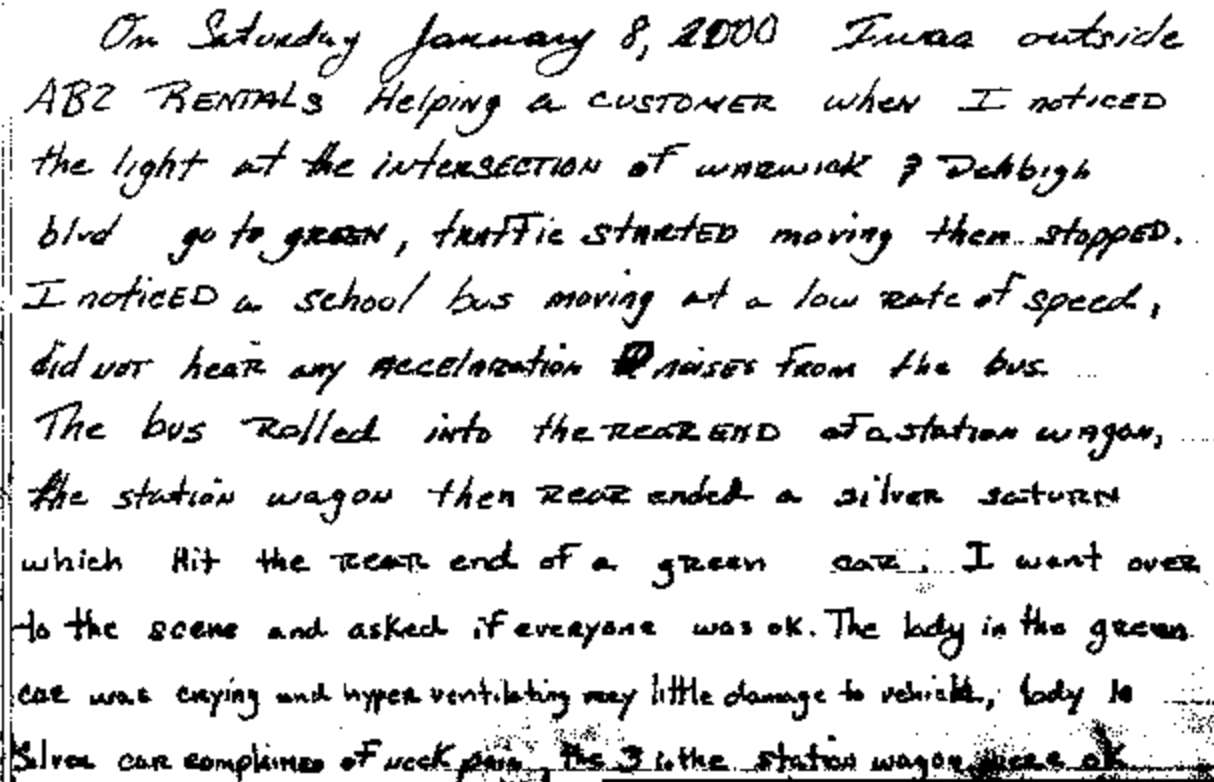 On Saturday January 8, 2000 I was outside
ABZ RENTALS Helping a CUSTOMER when I noticED
the light at the intERSECTION of WARWICK & Denbigh
blvd go to GREEN, traffic STARTED moving then stoppED.
I noticED a school bus moving at a low rate of speed,
did NOT hear any Accelaration noises from the bus.
The bus Rolled into the REAR END of a station wagon,
the station wagon then REAR ended a silver saturn
which Hit the REAR end of a green car. I went over
to the scene and asked if everyone was ok. The lady in the green
car was crying and hyper ventilating very little damage to vehicle, lady in
Silver car complained of neck pain, the 3 in the station wagon were ok